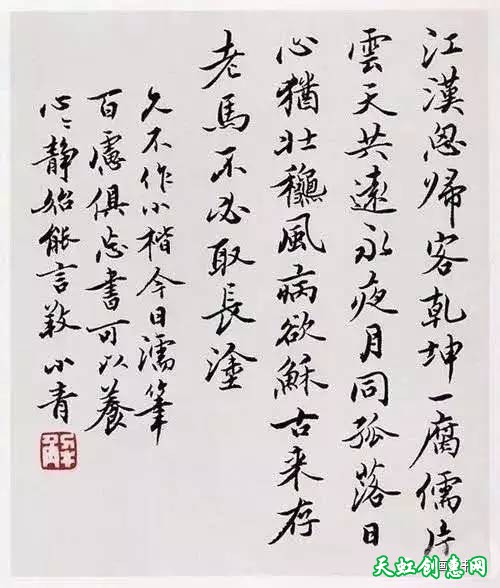 江漢思歸客乾坤一腐儒片
雲天共遠永夜月同孤落日
心猶壯穐風病欲穌古来存
老馬不必取長塗
久不作小楷今日濡筆
百慮俱忘書可以養
心々静始能言小青
天虹创惠网